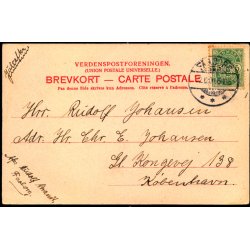 VERDENSPOSTFORENINGEN.
(UNION POSTALE UNIVERSELLE.)
BREVKORT — CARTE POSTALE
Paa denne Side skrives kun Adressen. Côté réservé à l'adresse.
Hrr. Rudolf Johansen
Adr. Hr. Chr. E. Johansen
Gl. Kongevej 138
København.
Afs. Rudolf